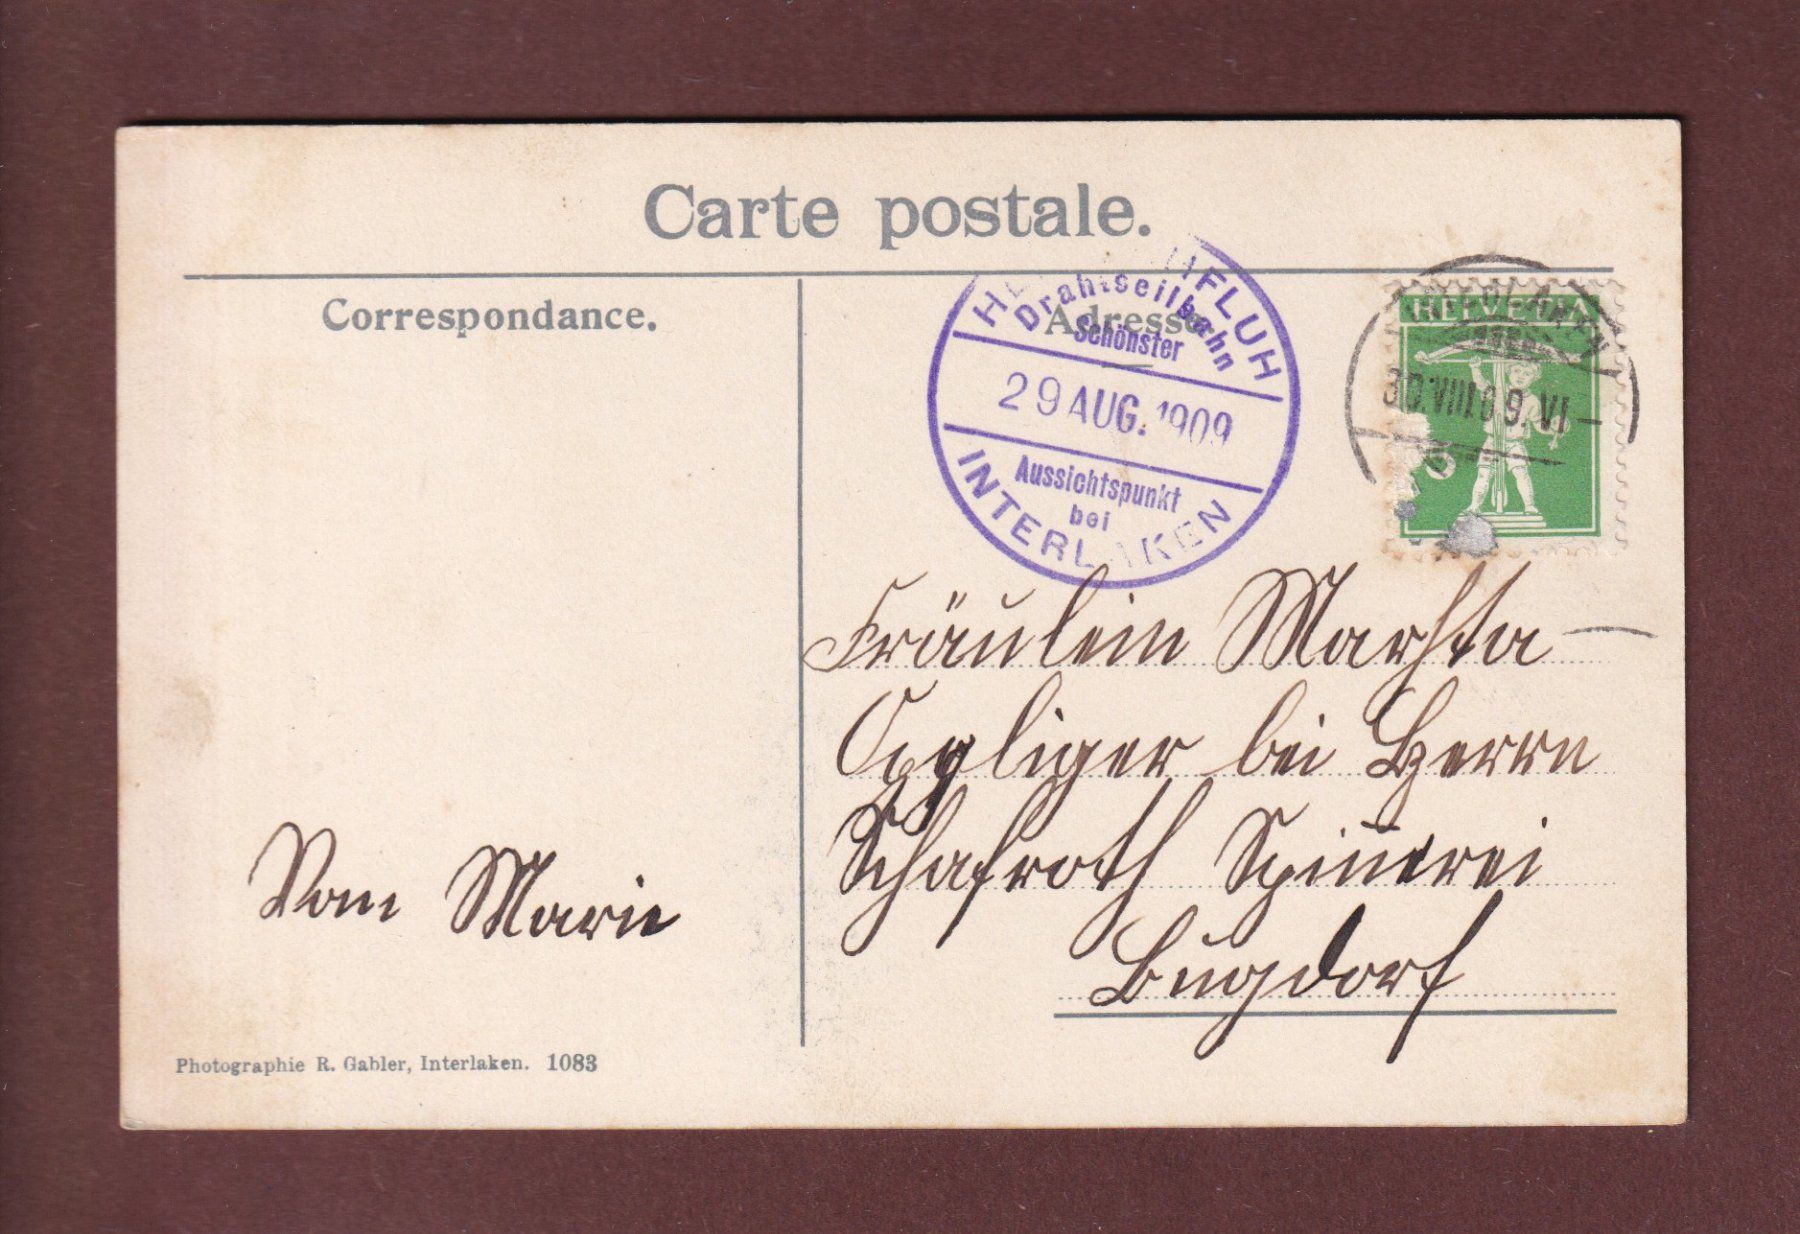 Carte postale.
Correspondance.
Adresse
HEIMWEHFLUH
Drahtseilbahn
Schönster
29 AUG. 1909
Aussichtspunkt
bei
INTERLAKEN
HELVETIA
30.VIII.09.VI
Fräulein Martha
Oppliger bei Herrn
Schafroth Spinnerei
Bugdorf
Vom Marie
Photographie R. Gabler, Interlaken. 1083